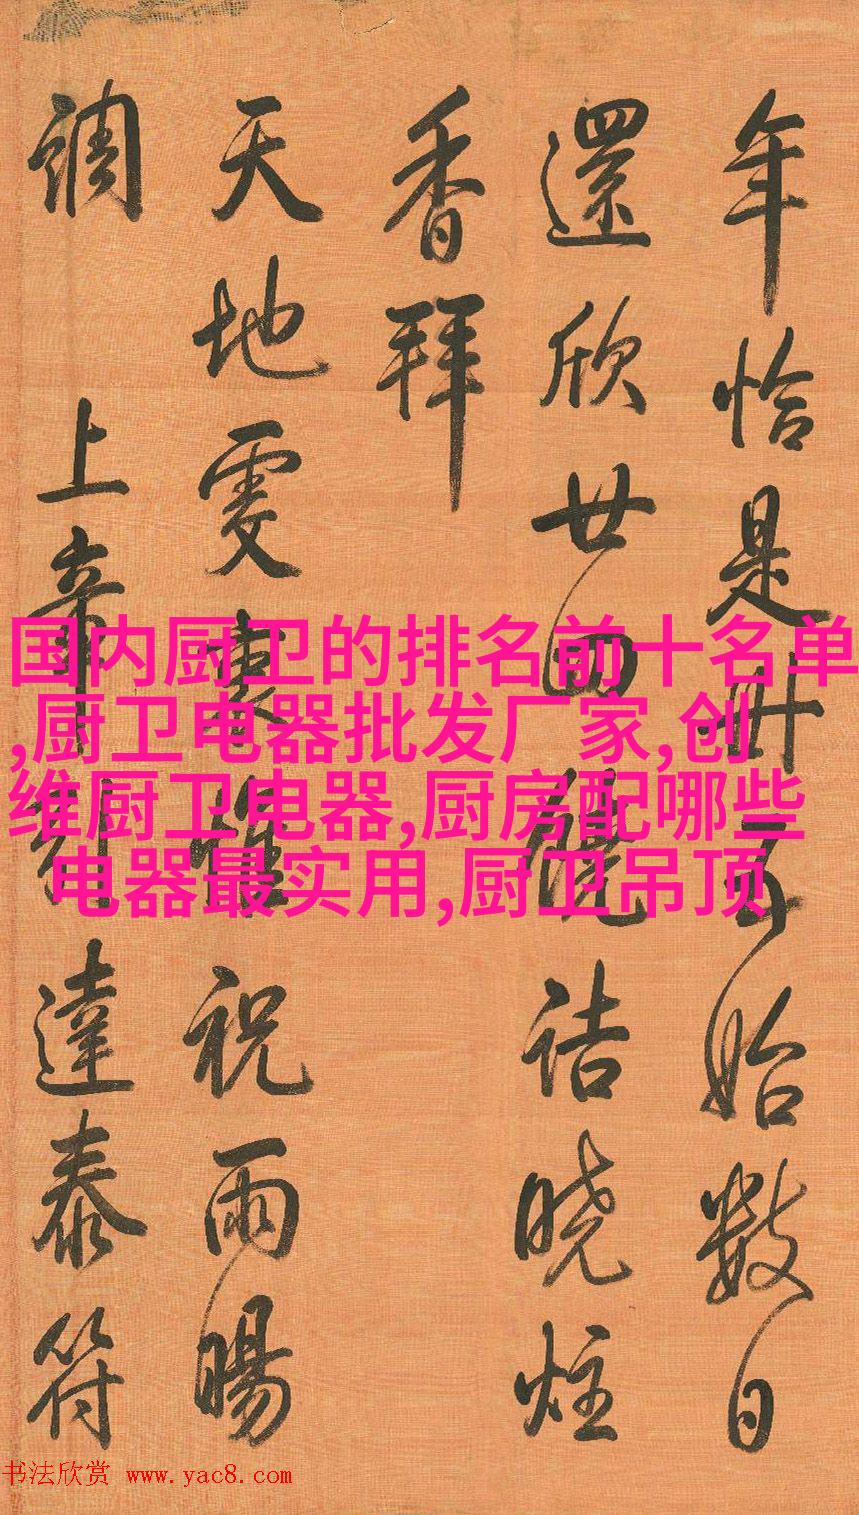 年恰是卅五始数日
還欣廿四饒诘晓炷
香拜
天地雯裏惟祝雨暘
調
上辛引達泰符
国内厨卫的排名前十名单
,厨卫电器批发厂家,创
维厨卫电器,厨房配哪些
电器最实用,厨卫吊顶
书法欣赏 www.yac8.com